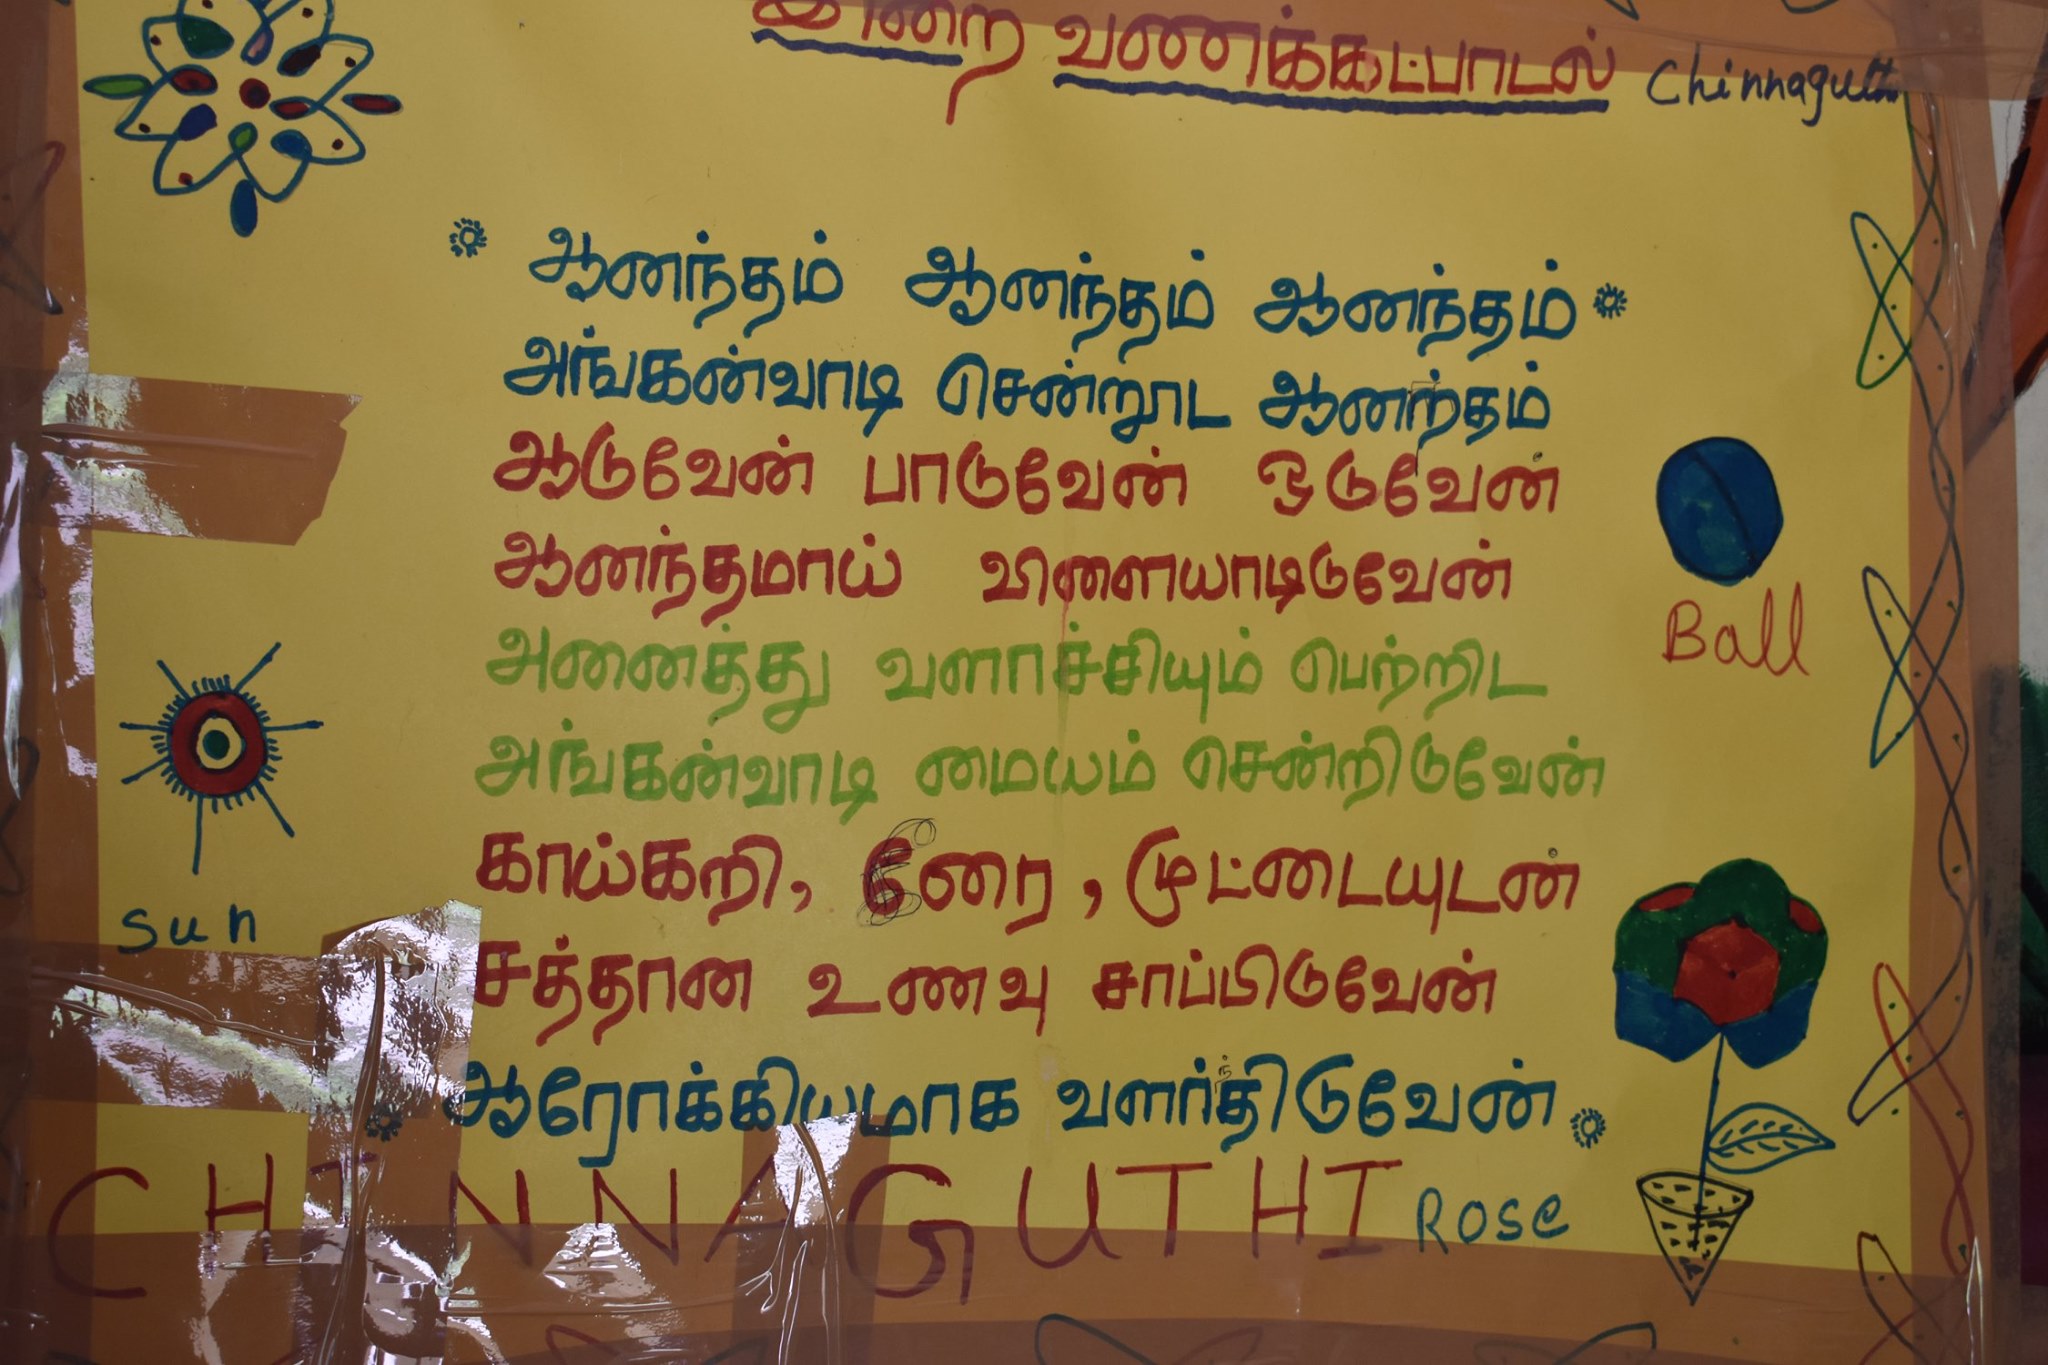 இறை வணக்கட்பாடல்
Chinnaguthi
ஆனந்தம் ஆனந்தம் ஆனந்தம்
அங்கன்வாடி சென்றூட ஆனந்தம்
ஆடுவேன் பாடுவேன் ஓடுவேன்
ஆனந்தமாய் விளையாடிடுவேன்
அனைத்து வளாச்சியும் பெற்றிட
அங்கன்வாடி மையம் சென்றிடுவேன்
காய்கறி, கீரை, முட்டையுடன்
சத்தான உணவு சாப்பிடுவேன்
ஆரோக்கியமாக வளர்ந்திடுவேன்
Ball
Sun
CHINNAGUTHI
Rose